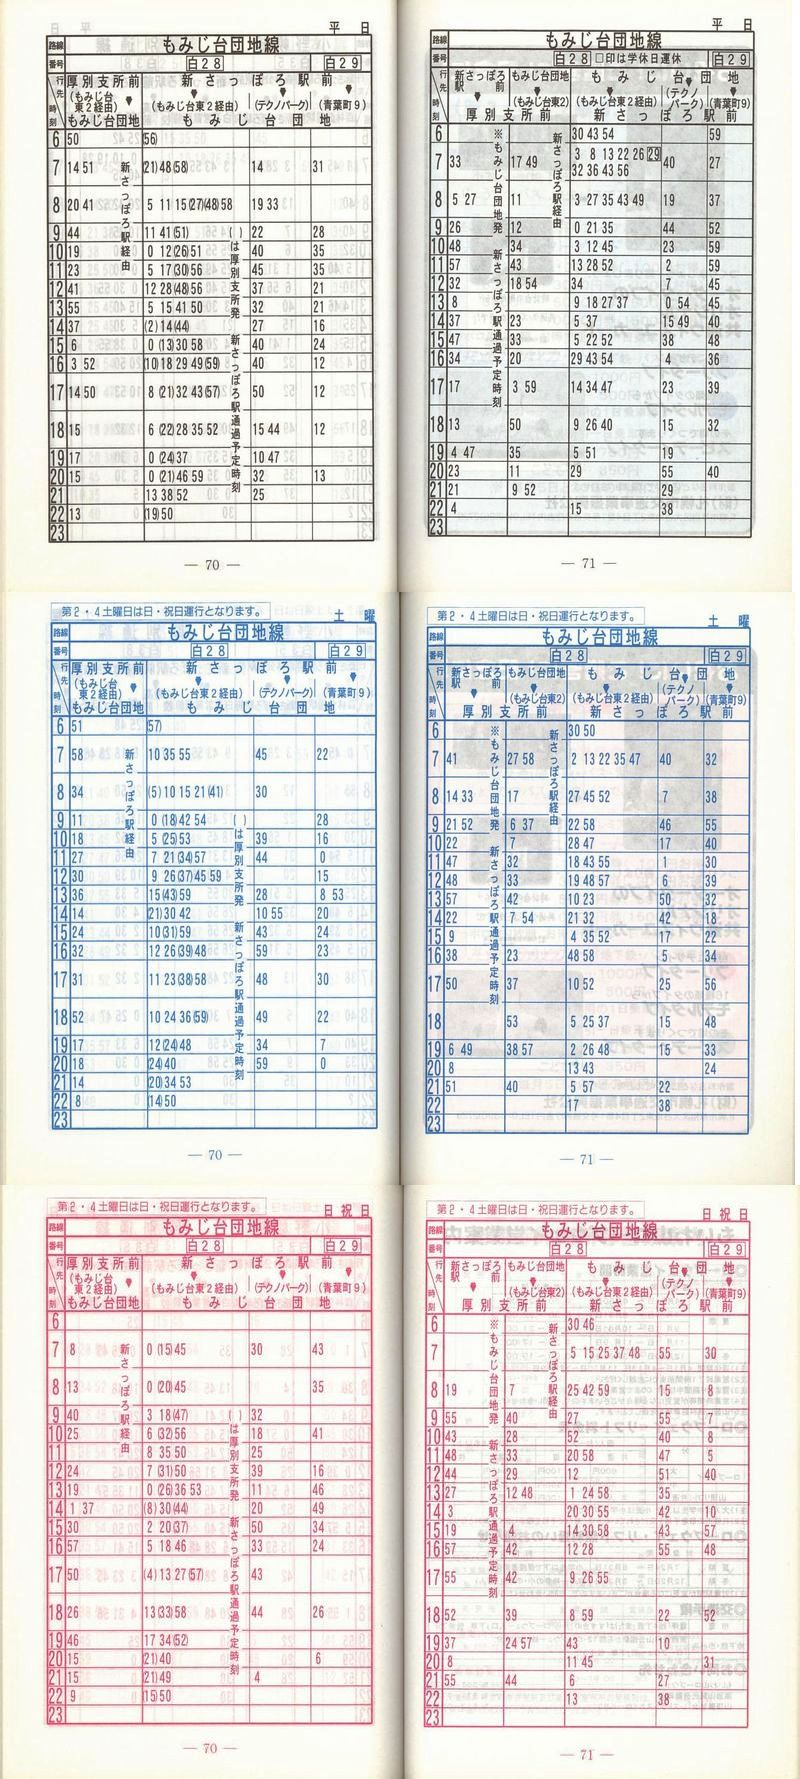 平 日
路線 もみじ台団地線
番号 白28 白29
行先 厚別支所前 新さっぽろ駅前
(もみじ台東2経由) (もみじ台東2経由) (テクノパーク) (青葉町9)
時刻 もみじ台団地 もみじ台団地
新さっぽろ駅経由
( )は厚別支所発 新さっぽろ駅通過予定時刻
6 50 56)
7 14 51 (21)48(58) 14 31
8 20 41 5 11 15(27)(48)58 19 33
9 44 11 41(51) 22 28
10 19 0 12(26)51 40 35
11 23 5 17(30)56 45 35
12 41 12 28(48)56 37 56 21
13 55 5 15 41 50 32 21
14 37 (2)14(44) 27 16
15 6 0 (13)30 58 40 24
16 3 52 (10)18 29 49(59) 40 32 12
17 14 50 8 (21)32 43(57) 50 12
18 15 6 (22)28 35 52 15 44 12
19 17 0 (24)37 10 47
20 15 0 (21)46 59 32 13
21 13 38 52 25
22 13 (19)50
23
— 70 —
平 日
路線 もみじ台団地線
番号 白28 □印は学休日運休 白29
行先 新さっぽろ駅前 もみじ台団地 もみじ台団地
(もみじ台東2) (もみじ台東2経由) (テクノパーク) (青葉町9)
時刻 厚別支所前 新さっぽろ駅前
※もみじ台団地発 新さっぽろ駅通過予定時刻
新さっぽろ駅経由
6 30 43 54 59
7 33 17 49 3 8 13 22 26 29 40 27
32 36 43 56
8 5 27 11 3 27 35 43 49 19 37
9 26 12 0 21 35 44 52
10 48 34 3 12 45 23 59
11 57 43 13 28 52 2 59
12 32 18 54 34 7 45
13 8 9 18 27 37 0 54 45
14 37 23 5 37 15 49 40
15 47 33 5 22 52 38 48
16 34 20 29 43 54 4 36
17 17 3 59 14 34 47 23 39
18 13 50 9 26 40 15 32
19 4 47 35 5 51 19
20 23 11 29 55 40
21 21 9 52 29
22 4 15 38
23
— 71 —
第2・4土曜日は日・祝日運行となります。
土 曜
路線 もみじ台団地線
番号 白28 白29
行先 厚別支所前 新さっぽろ駅前
(もみじ台東2経由) (もみじ台東2経由) (テクノパーク) (青葉町9)
時刻 もみじ台団地 もみじ台団地
新さっぽろ駅経由
( )は厚別支所発 新さっぽろ駅通過予定時刻
6 51 57)
7 58 10 35 55 45 22
8 34 (5)10 15 21(41) 30
9 11 0 (18)42 54 28
10 18 5 (25)53 39 16
11 27 7 21(34)57 44 0
12 30 9 26(37)45 59 15
13 36 15(43)59 28 8 53
14 14 (21)30 42 10 55 20
15 24 10(31)59 43 24
16 32 12 26(39)48 59 23
17 31 11 23(38)58 48 30
18 52 10 24 36(59) 49 22
19 17 12(24)48 34 7
20 18 (24)40 59 0
21 14 (20)34 53
22 8 (14)50
23
— 70 —
第2・4土曜日は日・祝日運行となります。
土 曜
路線 もみじ台団地線
番号 白28 白29
行先 新さっぽろ駅前 もみじ台団地 もみじ台団地
(もみじ台東2) (もみじ台東2経由) (テクノパーク) (青葉町9)
時刻 厚別支所前 新さっぽろ駅前
※もみじ台団地発 新さっぽろ駅通過予定時刻
新さっぽろ駅経由
6 30 50
7 41 27 58 2 13 22 35 47 40 32
8 14 33 17 27 45 52 7 38
9 21 52 6 37 22 58 46 55
10 22 7 28 47 17 40
11 47 32 18 43 55 1 30
12 48 33 19 48 57 6 39
13 57 42 10 23 50 32
14 22 7 54 21 32 42 18
15 9 4 35 52 17 22
16 38 23 48 58 5 34
17 50 37 10 52 25 56
18 53 5 25 37 15 48
19 6 49 38 57 2 26 48 15 33
20 8 13 43 24
21 51 40 5 57 22
22 17 38
23
— 71 —
第2・4土曜日は日・祝日運行となります。
日祝日
路線 もみじ台団地線
番号 白28 白29
行先 厚別支所前 新さっぽろ駅前
(もみじ台東2経由) (もみじ台東2経由) (テクノパーク) (青葉町9)
時刻 もみじ台団地 もみじ台団地
新さっぽろ駅経由
( )は厚別支所発 新さっぽろ駅通過予定時刻
6
7 8 0 (15)45 30 43
8 13 0 (20)45 35
9 40 3 18(47) 32
10 25 6 (32)56 18 41
11 8 35 50 25
12 24 7 (31)50 39 16
13 19 0 (26)36 53 11 46
14 1 37 (8)30(44) 20 49
15 30 2 20(37) 50 34
16 57 5 18 46 33 24
17 50 (4)13 27(57) 43
18 26 13(33)58 44 26
19 46 17 34(52)
20 15 (21)40 6
21 15 (21)49 4
22 9 (15)50
23
— 70 —
第2・4土曜日は日・祝日運行となります。
日祝日
路線 もみじ台団地線
番号 白28 白29
行先 新さっぽろ駅前 もみじ台団地 もみじ台団地
(もみじ台東2) (もみじ台東2経由) (テクノパーク) (青葉町9)
時刻 厚別支所前 新さっぽろ駅前
※もみじ台団地発 新さっぽろ駅通過予定時刻
新さっぽろ駅経由
6 30 46
7 5 15 25 37 48 55 30
8 19 7 25 42 59 15 8
9 55 40 27 55 7
10 43 28 52 40 8
11 48 33 20 58 47 5
12 44 29 12 51 40
13 27 12 48 1 24 58 35
14 3 20 30 55 42 10
15 19 4 14 30 58 43 57
16 57 42 12 28 55 48
17 55 42 9 26 55
18 52 39 8 59 22 52
19 37 24 57 43 10
20 8 11 45 31
21 55 44 6 27
22 13 38
23
— 71 —